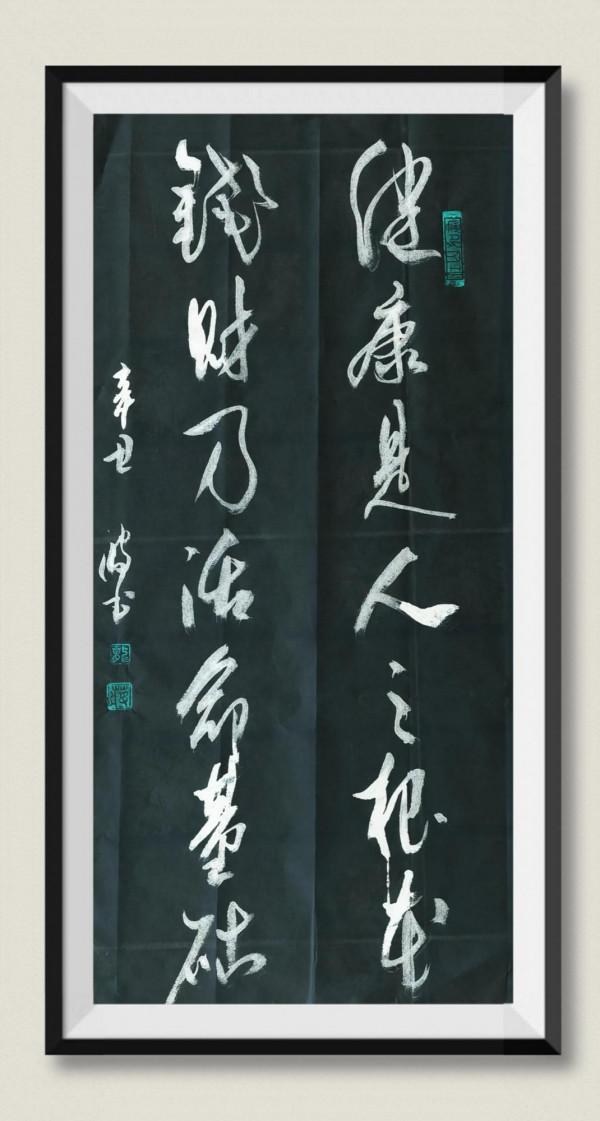 健康是人之根本
錢財乃活命基础
辛丑
书